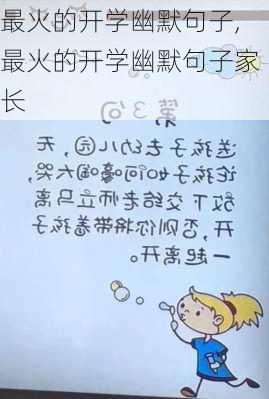 最火的开学幽默句子,
最火的开学幽默句子家
长
第3句
送孩子去幼儿园，无
论孩子如何嚎啕大哭，
放下交给老师立马离
开，否则你将带着孩子
一起离开。